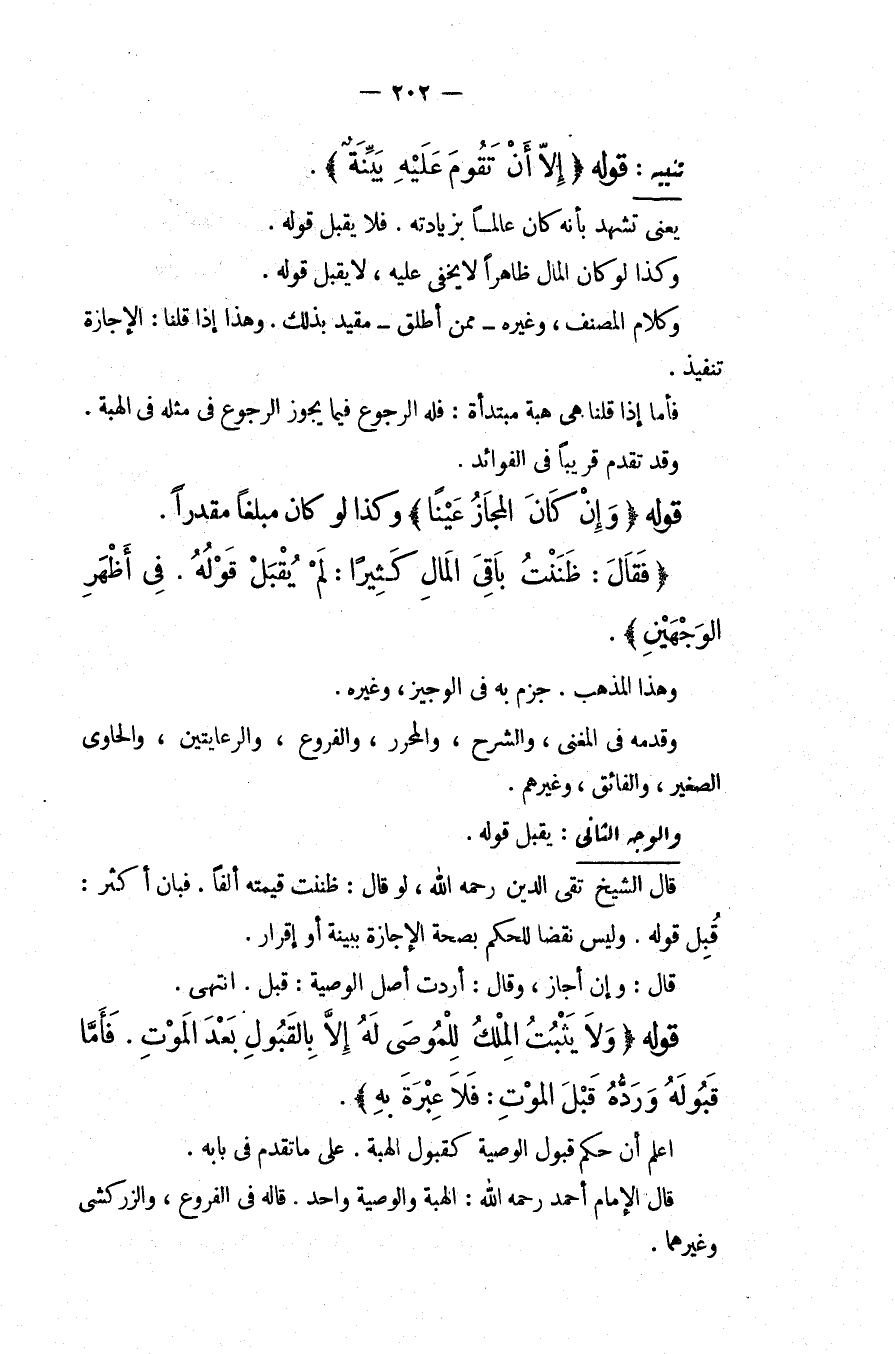 — ٢٠٢ —
تنبيه : قوله ﴿ إِلاَّ أَنْ تَقُومَ عَلَيْهِ بَيِّنَةٌ ﴾ .
يعنى تشهد بأنه كان عالمـاً بزيادته . فلا يقبل قوله .
وكذا لو كان المال ظاهراً لايخفى عليه ، لايقبل قوله .
وكلام المصنف ، وغيره ــ ممن أطلق ــ مقيد بذلك . وهذا إذا قلنا : الإجازة
تنفيذ .
فأما إذا قلنا هى هبة مبتدأة : فله الرجوع فيما يجوز الرجوع فى مثله فى الهبة .
وقد تقدم قريباً فى الفوائد .
قوله ﴿ وَإِنْ كَانَ المجَازُ عَيْنًا ﴾ وكذا لو كان مبلغاً مقدراً .
﴿ فَقَالَ : ظَنَنْتُ بَاقِىَ المَالِ كَثِيرًا : لَمْ يُقْبَلْ قَوْلُهُ . فِى أَظْهَرِ
الوَجْهَيْنِ ﴾ .
وهذا المذهب . جزم به فى الوجيز ، وغيره .
وقدمه فى المغنى ، والشرح ، والمحرر ، والفروع ، والرعايتين ، والحاوى
الصغير ، والفائق ، وغيرهم .
والوجه الثانى : يقبل قوله .
قال الشيخ تقى الدين رحمه الله ، لو قال : ظننت قيمته ألفاً . فبان أكثر :
قُبِل قوله . وليس نقضا للحكم بصحة الإجازة ببينة أو إقرار .
قال : وإن أجاز ، وقال : أردت أصل الوصية : قبل . انتهى .
قوله ﴿ وَلاَ يَثْبُتُ المِلْكُ لِلْمُوصَى لَهُ إِلاَّ بِالقَبُولِ بَعْدَ المَوْتِ . فَأَمَّا
قَبُولَهُ وَرَدُّهُ قَبْلَ الموْتِ : فَلاَ عِبْرَةَ بِهِ ﴾ .
اعلم أن حكم قبول الوصية كقبول الهبة . على ماتقدم فى بابه .
قال الإمام أحمد رحمه الله : الهبة والوصية واحد . قاله فى الفروع ، والزركشى
وغيرهما .